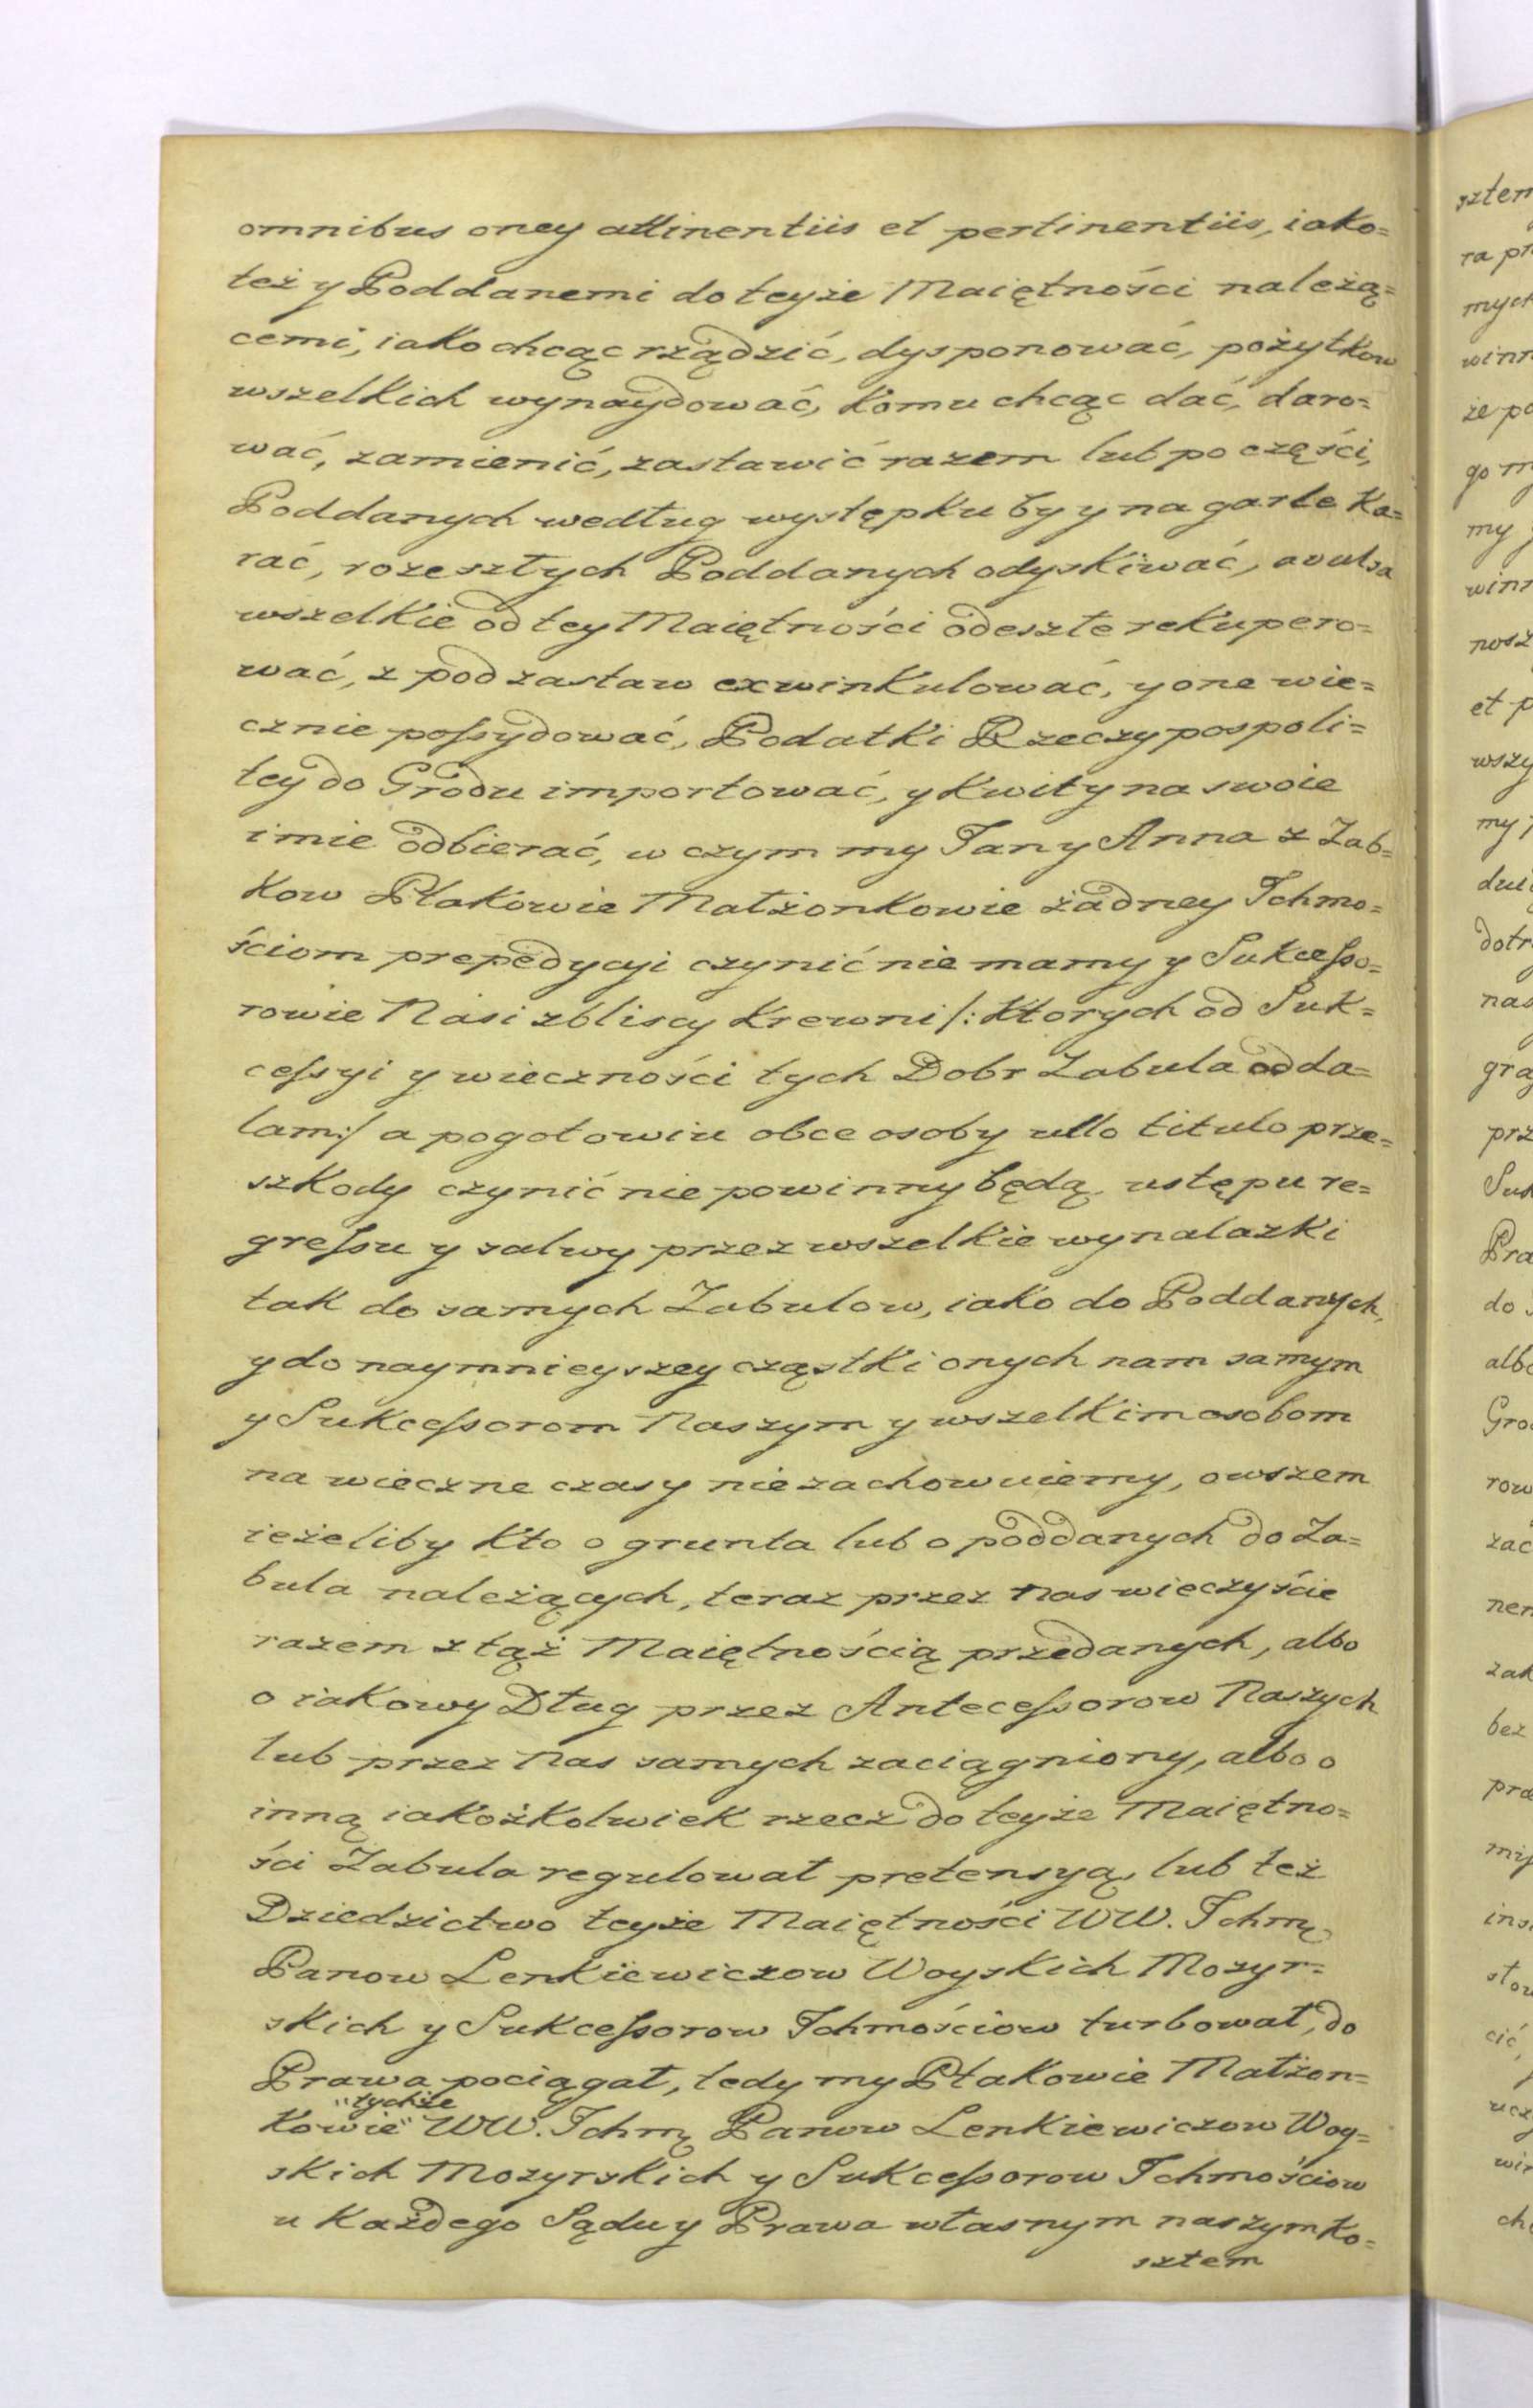 omnibus oney attinentiis et pertinentiis, iako=
też y Poddanemi do teyże Maiętności należą=
cemi, iako chcąc rządzić, dysponować, pożytkow
wszelkich wynaydować, komu chcąc dać, daro=
wać, zamienić, zastawić razem lub po części,
Poddanych według występku by y na garle ka=
rać, rozeszłych Poddanych odyskiwać, avulsa
wszelkie od tey Maiętności odeszłe rekupero=
wać, z pod zastaw exwinkulować, y one wie=
cznie possydować, Podatki Rzeczypospoli=
tey do Grodu importować, y kwity na swoie
imie odbierać, w czym my Jan y Anna z Zab=
kow Ptakowie Małżonkowie żadney Ichmo=
ściom prepedycyi czynić nie mamy y Sukcesso=
rowie Nasi zbliscy krewni /: ktorych od Suk=
cessyi y wieczności tych Dobr Zabula odda=
lam :/ a pogotowiu obce osoby ullo titulo prze=
szkody czynić nie powinny będą, ustępu re=
gressu y salwy przez wszelkie wynalazki
tak do samych Zabulow, iako do Poddanych,
y do naymnieyszey cząstki onych nam samym
y Sukcessorom Naszym y wszelkim osobom
na wieczne czasy nie zachowuiemy, owszem
ieżeliby kto o grunta lub o poddanych do Za=
bula należących, teraz przez nas wieczyście
razem z tąż Maiętnością przedanych, albo
o iakowy Dług przez Antecessorow Naszych
lub przez Nas samych zaciągniony, albo o
inną iakożkolwiek rzecz do teyże Maiętno=
ści Zabula regulował pretensyą, lub też
Dziedzictwo teyże Maiętności WW. Ichmę
Panow Lenkiewiczow Woyskich Mozyr=
skich y Sukcessorow Ichmościow turbował, do
Prawa pociągał, tedy my Ptakowie Małżon=
"tychże
kowie" WW. Ichmę Panow Lenkiewiczow Woy=
skich Mozyrskich y Sukcessorow Ichmościow
u każdego Sądu y Prawa własnym naszym ko=
sztem
sztem
ra
winn
że
my
winn
et p
Gro
bez
cić,